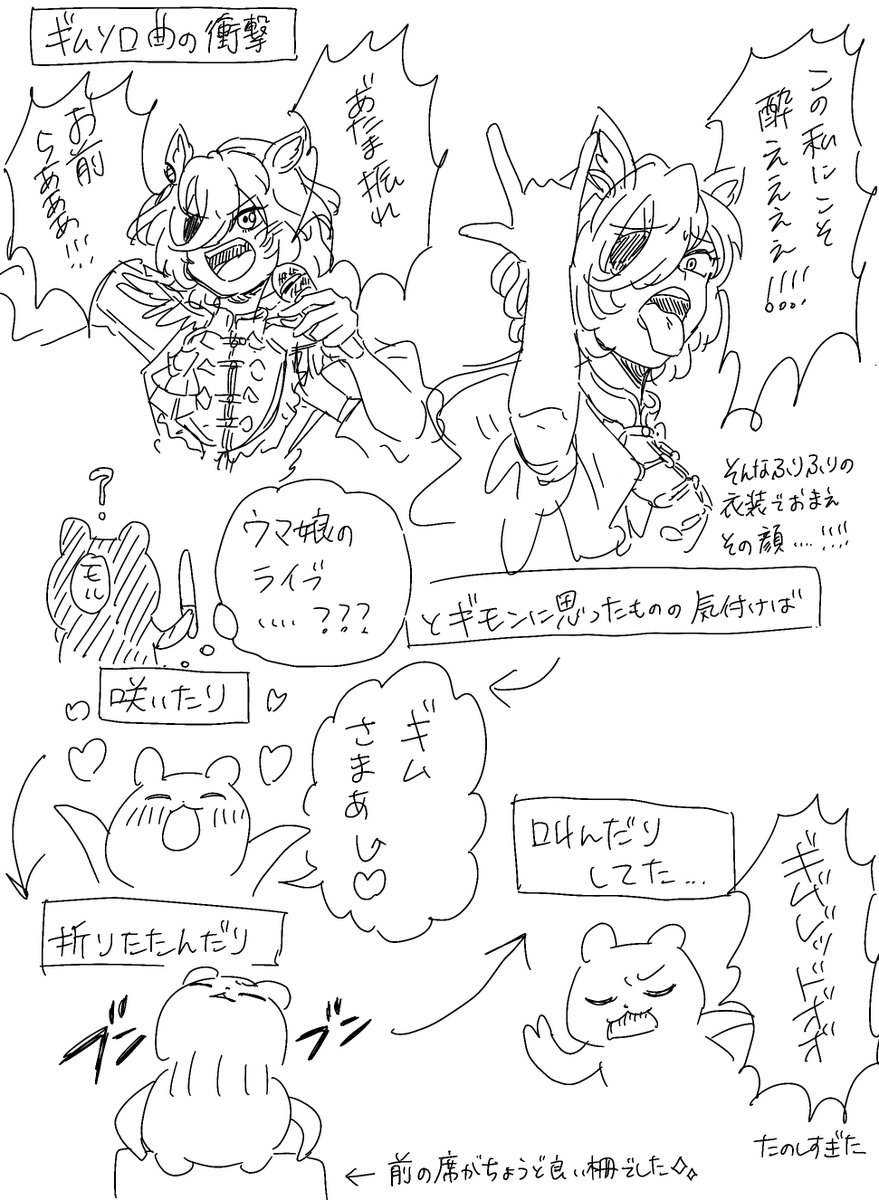 ギムソロ曲の衝撃
この私にこそ
酔えええええ!!!!
あたま振れ
お前
らあああ!!!
そんなふりふりの
衣装でおまえ
その顔....!!!!
?
モル
ウマ娘の
ライブ
....???
とギモンに思ったものの気付けば
咲いたり
ギム
さまあし♡
折りたたんだり
ブン
ブン
叫んだり
してた...
ギムレッドオオ
← 前の席がちょうど良い柵でした
たのしすぎた